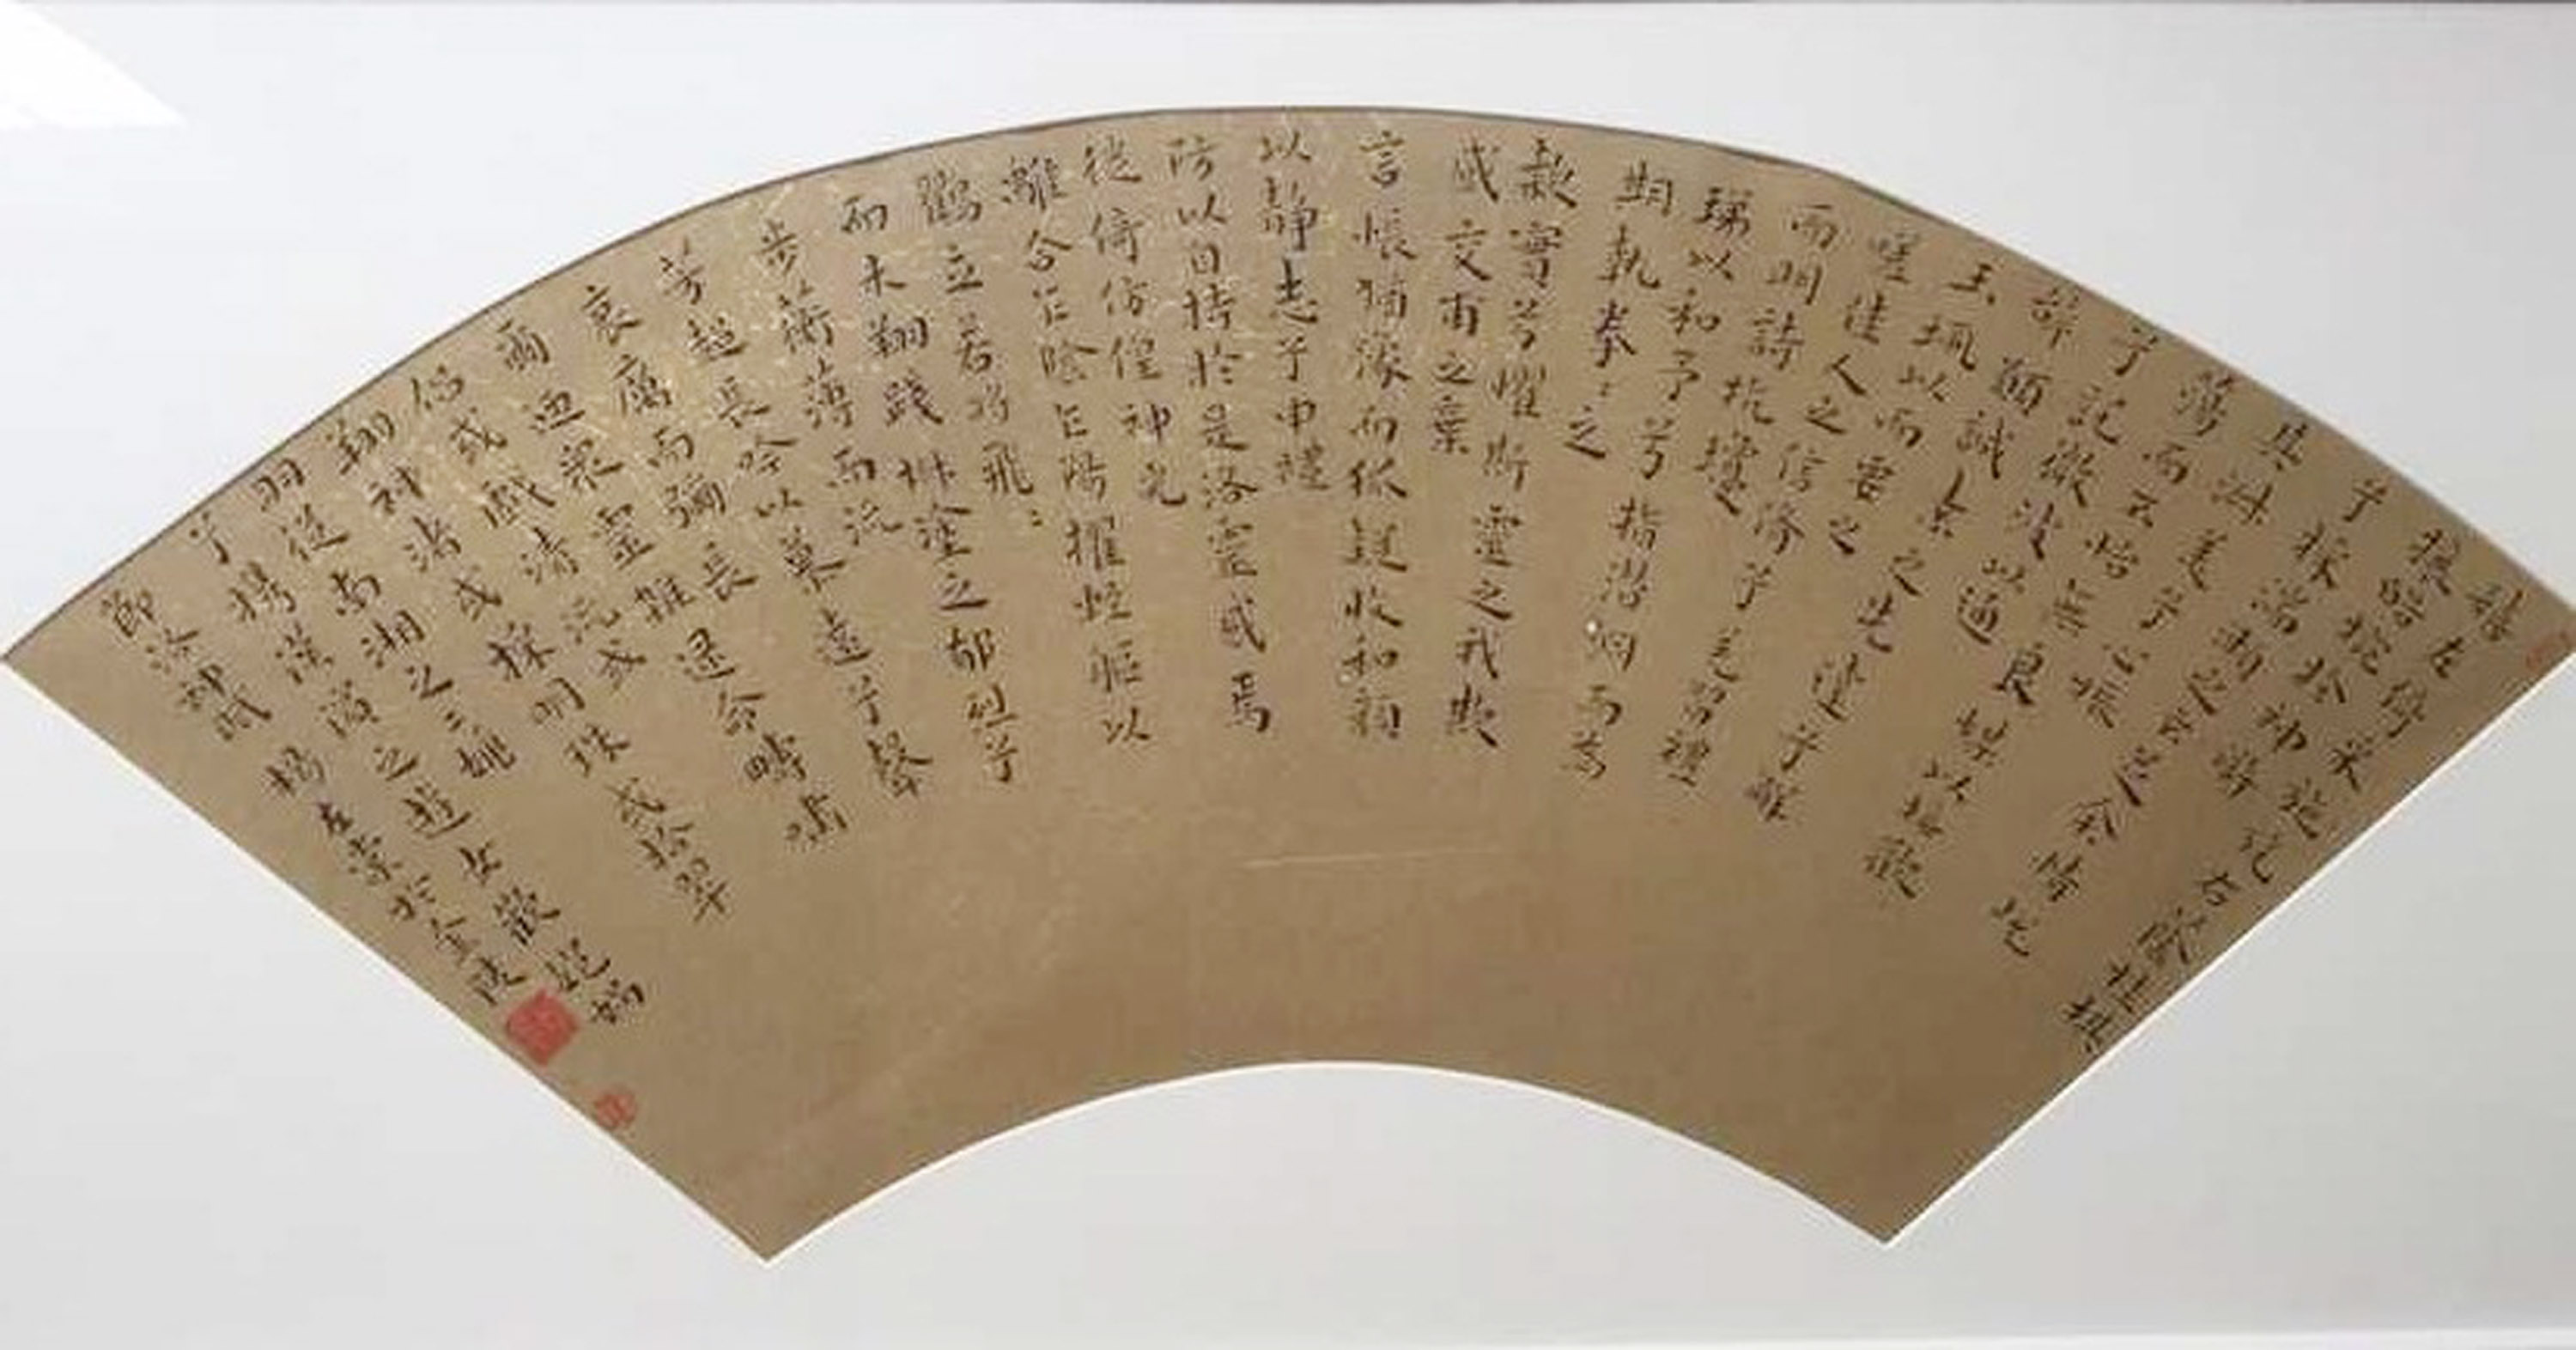 嬉左倚采旄右蔭桂旗
攘皓腕於神滸
兮採湍瀨之玄芝余情悅
其淑美兮心振
蕩而不怡無良媒以接歡
兮託微波以通
辭願誠素之先達兮解
玉珮以而要之
嗟佳人之信脩兮羌習禮
而明詩抗瓊
珶以和予兮指潛淵而為
期執拳々之
款實兮懼斯靈之我欺
感交甫之棄
言悵猶豫而狐疑收和顏
以靜志兮申禮
防以自持於是洛靈感焉
徙倚仿偟神光
離合乍陰乍陽擢輕軀以
鶴立若將飛
而未翔踐椒塗之郁烈兮
步蘅薄而流
芳超長吟以慕遠兮聲
哀厲而彌長
爾迺衆靈雜遝命疇嘯
侶或戲清流或
翔神渚或採明珠或拾翠
羽從南湘之二姚
兮攜漢濱之遊女歎匏
節洛神賦